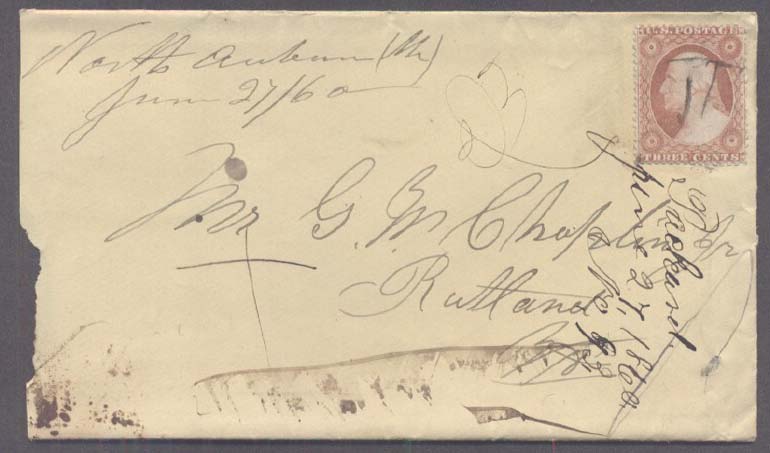 North Auburn (Me)
June 27/60
U.S. POSTAGE
THREE CENTS
Mr G. M. Chaplin Jr
Rutland
June 27, 1860